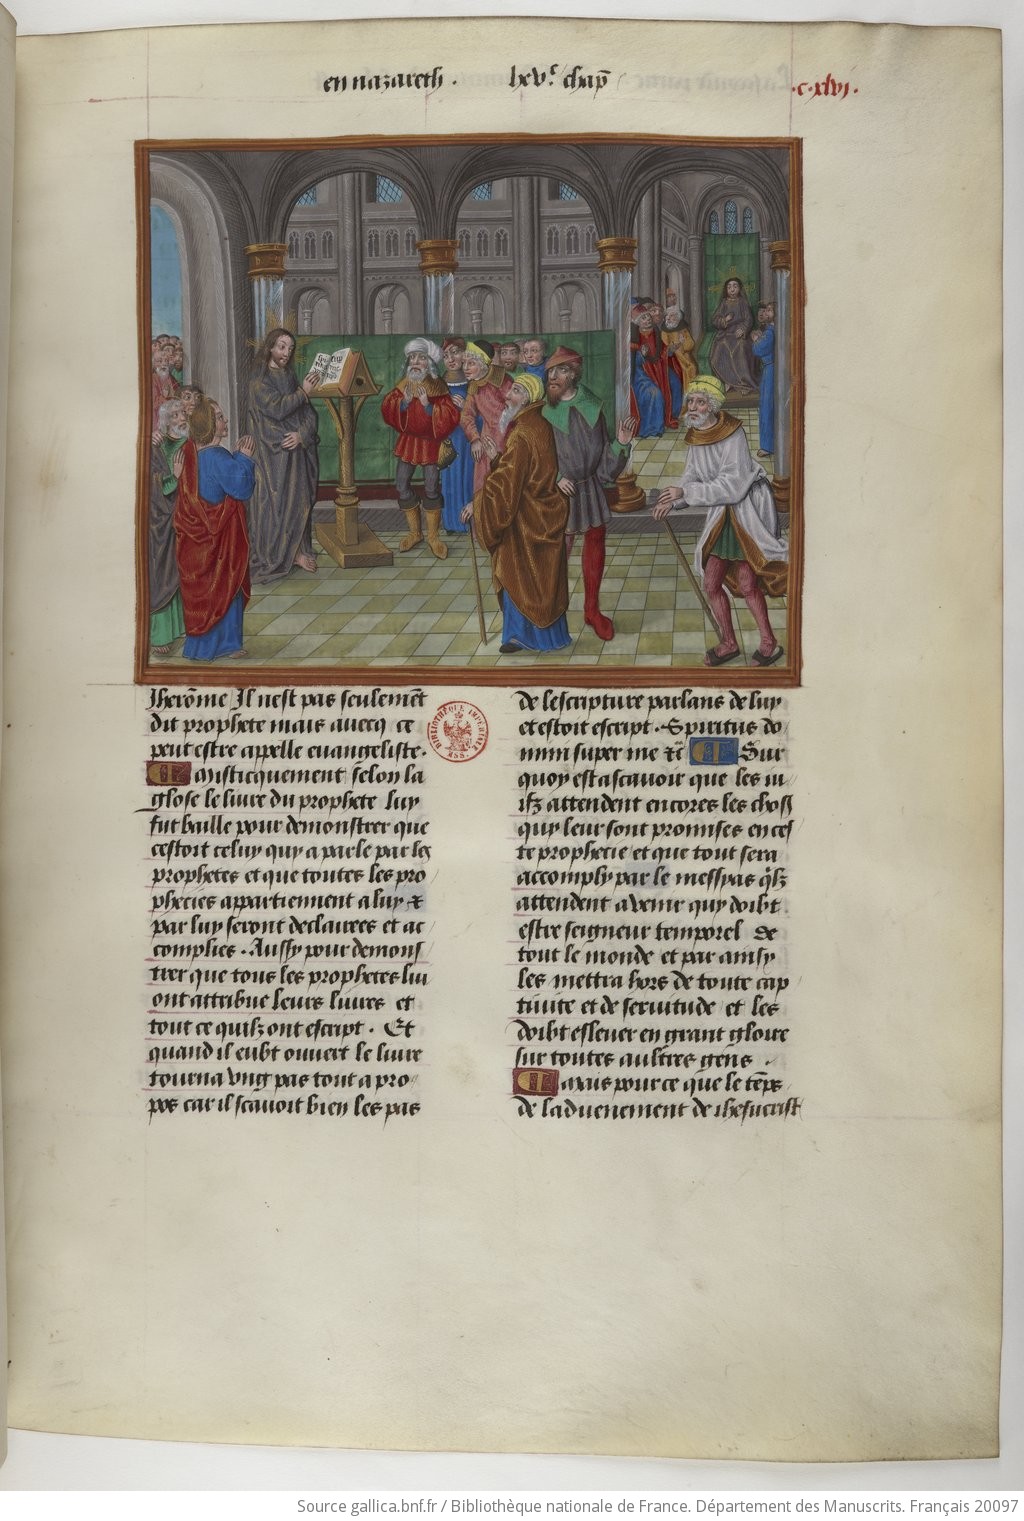 en nazareth . lxv.e chap̄
.c.xlvi.
Iherōme Il nest pas seulemēt
dit prophete mais avecq ce
peut estre appelle euangeliste.
Misticquement selon la
glose le livre du prophete luy
fut baille pour demonstrer que
cestoit celuy quy a parle par les
prophetes et que toutes les pro
phecies appartiennent a luy et
par luy seront declairees et ac
complies . Aussy pour demons
trer que tous les prophetes luy
ont attribue leurs livres et
tout ce quilz ont escript . Et
quand il eubt ouvert le livre
tourna ung pas tout a pro
pos car il scavoit bien les pas
de lescripture parlans de luy
et estoit escript . Spiritus do
mini super me &c̄ Sur
quoy est ascavoir que les iu
ifz attendent encores les choses
quy leur sont promises en ces
te prophecie et que tout sera
accomply par le messyas q̄lz
attendent a venir quy doibt
estre seigneur temporel de
tout le monde et par ainsy
les mettra hors de toute cap
tivite et de servitude et les
doibt eslever en grant gloire
sur toutes aultres gens .
Mais pour ce que le tēps
de ladvenement de ihesucrist
BIBLIOTHÈQUE IMPÉRIALE MSS.
Source gallica.bnf.fr / Bibliothèque nationale de France. Département des Manuscrits. Français 20097